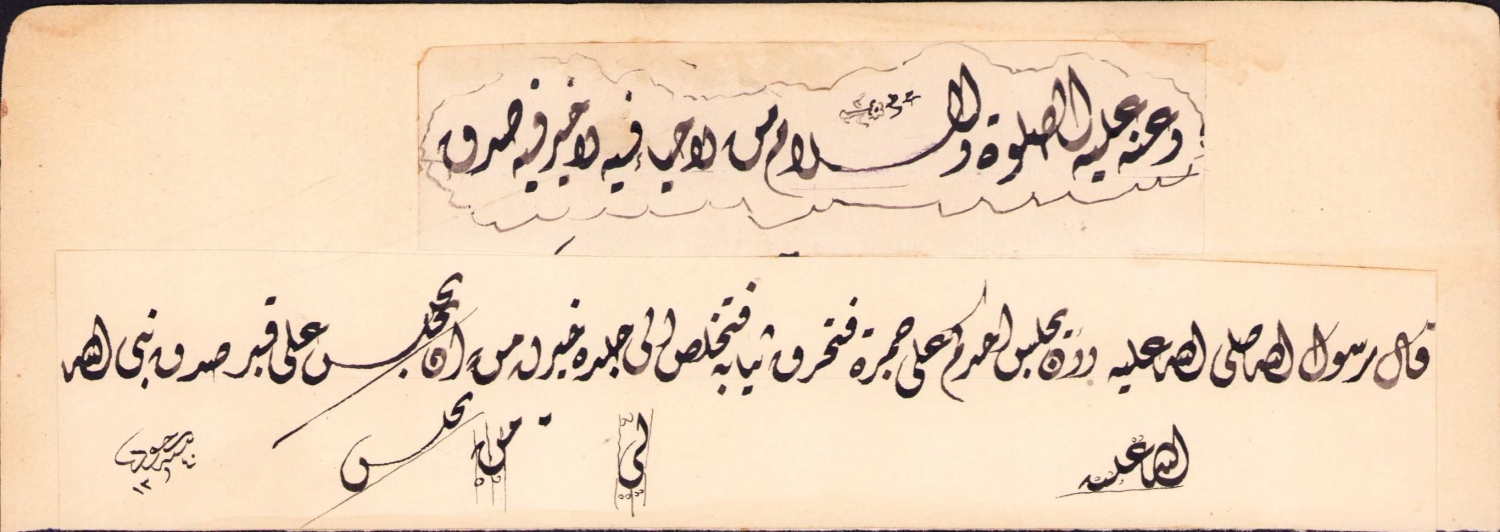 وعنه عليه الصلوة والسلام من لا حياء فيه لا خير فيه صدق
قال رسول الله صلى الله عليه لان يجلس احدكم على جمرة فتحرق ثيابه فتخلص الى جلده خير له من ان يجلس على قبر صدق نبى الله
الله عليه لى من يجلس